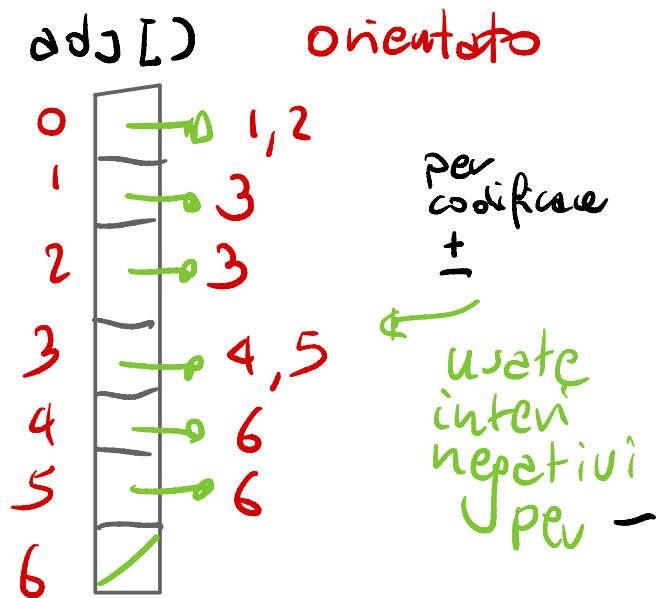 adj[] orientato
0 1,2
1 3
2 3
3 4,5
4 6
5 6
6
per
codificare
±
usate
interi
negativi
per −